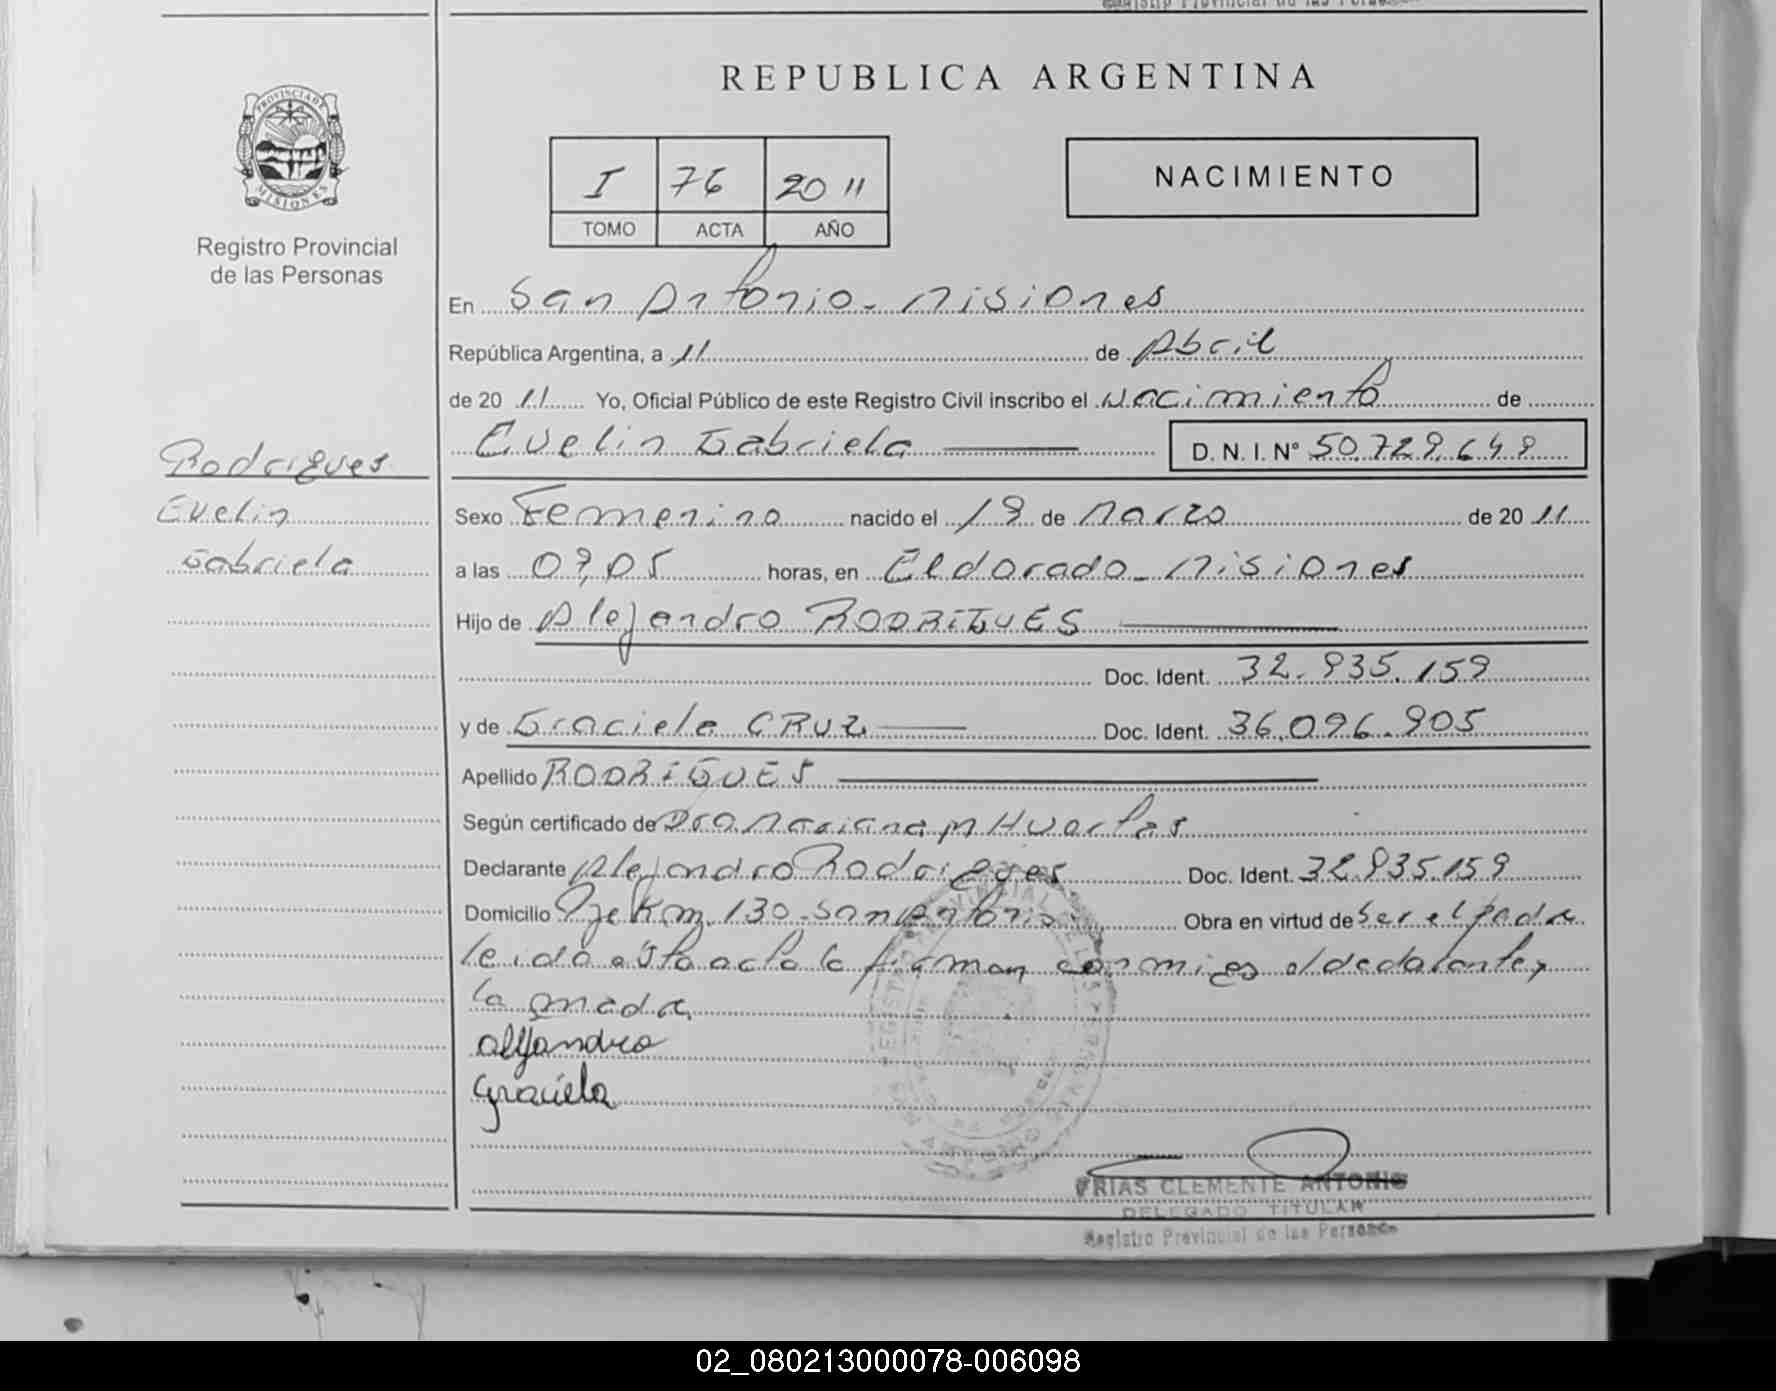 REPUBLICA ARGENTINA
PROVINCIA DE
MISIONES
Registro Provincial
de las Personas
I 76 2011
TOMO ACTA AÑO
NACIMIENTO
En San Antonio - Misiones
República Argentina, a 11 de Abril
de 20 11 Yo, Oficial Público de este Registro Civil inscribo el Nacimiento de
Evelin Gabriela D. N. I. Nº 50.729.649
Rodrigues
Evelin
Gabriela
Sexo Femenino nacido el 19 de Marzo de 20 11
a las 09,05 horas, en Eldorado - Misiones
Hijo de Alejandro RODRIGUES
Doc. Ident. 32.935.159
y de Graciela CRUZ Doc. Ident. 36.096.905
Apellido RODRIGUES
Según certificado de Dra Mariana M Huertas
Declarante Alejandro Rodrigues Doc. Ident. 32.935.159
Domicilio Pje Km. 130 - San Antonio Obra en virtud de Ser el padre
leida esta acta la firman conmigo el declarante y
la madre
Alejandro
Graciela
FRIAS CLEMENTE ANTONIO
DELEGADO TITULAR
Registro Provincial de las Personas
02_080213000078-006098